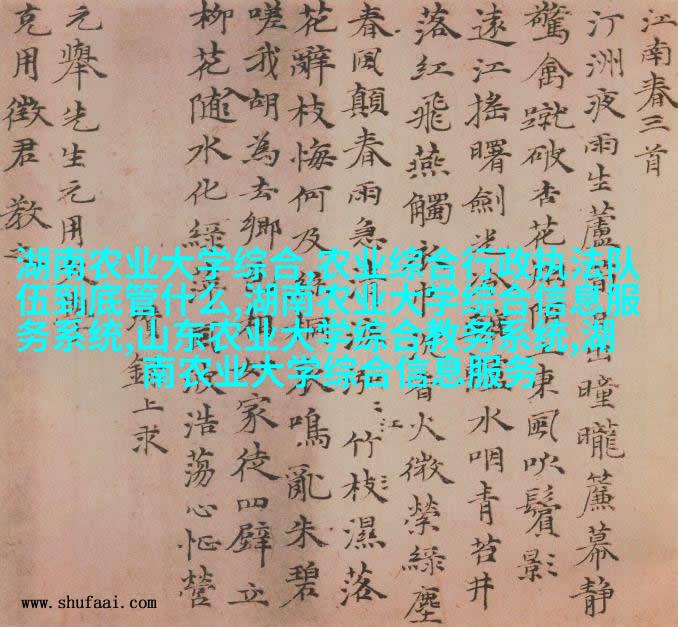 江南春三首
汀洲夜雨生蘆出曈曨簾幕静
驚禽蹴破杏花上東風吹鬢影
遠江搖曙劍水咽青苔井
落紅飛燕觸巾香火微縈綠塵
春風顛春雨急清江竹枝濕落
花辭枝悔何及桐哀鳴亂朱碧
嗟我胡為去鄉家徒四壁立
柳花隨水化綠浩蕩心怔營
瓚上求
元舉先生元用
克用徵君教之
湖南农业大学综合,农业综合行政执法队
伍到底管什么,湖南农业大学综合信息服
务系统,山东农业大学综合教务系统,湖
南农业大学综合信息服务
www.shufaai.com